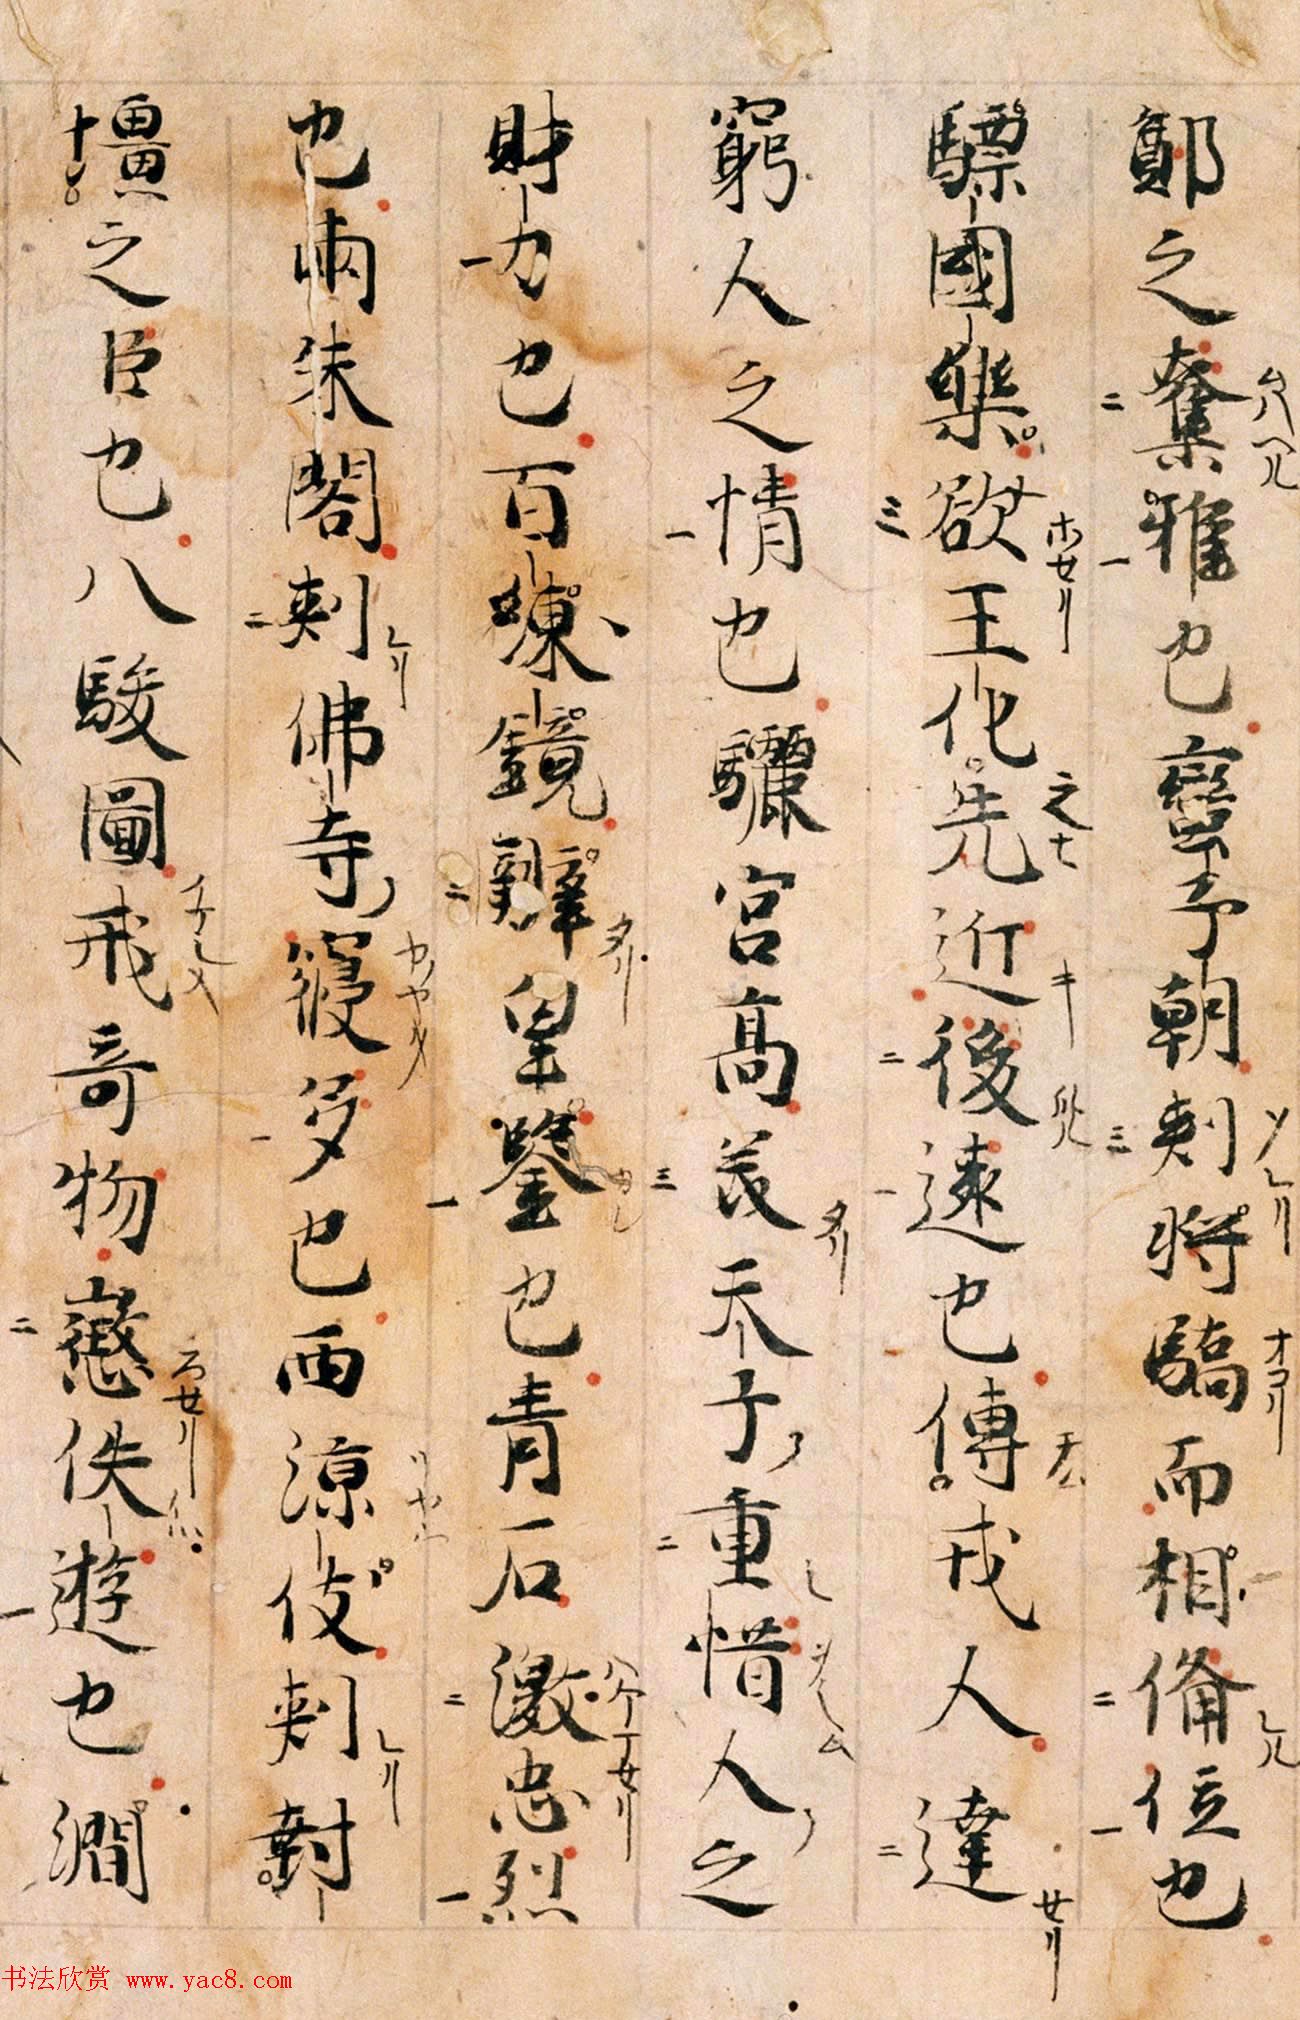 鄭之奪雅也蠻子朝刺将驕而相備位也
驃國樂欲王化先近後遠也傳戎人達
窮人之情也驪宮高美天子重惜人之
財力也百練鏡辭皇鑒也青石激忠烈
也兩朱閣刺佛寺寝多也西涼伎刺封
壃之臣也八駿圖戒奇物懲佚遊也澗
书法欣赏 www.yac8.com